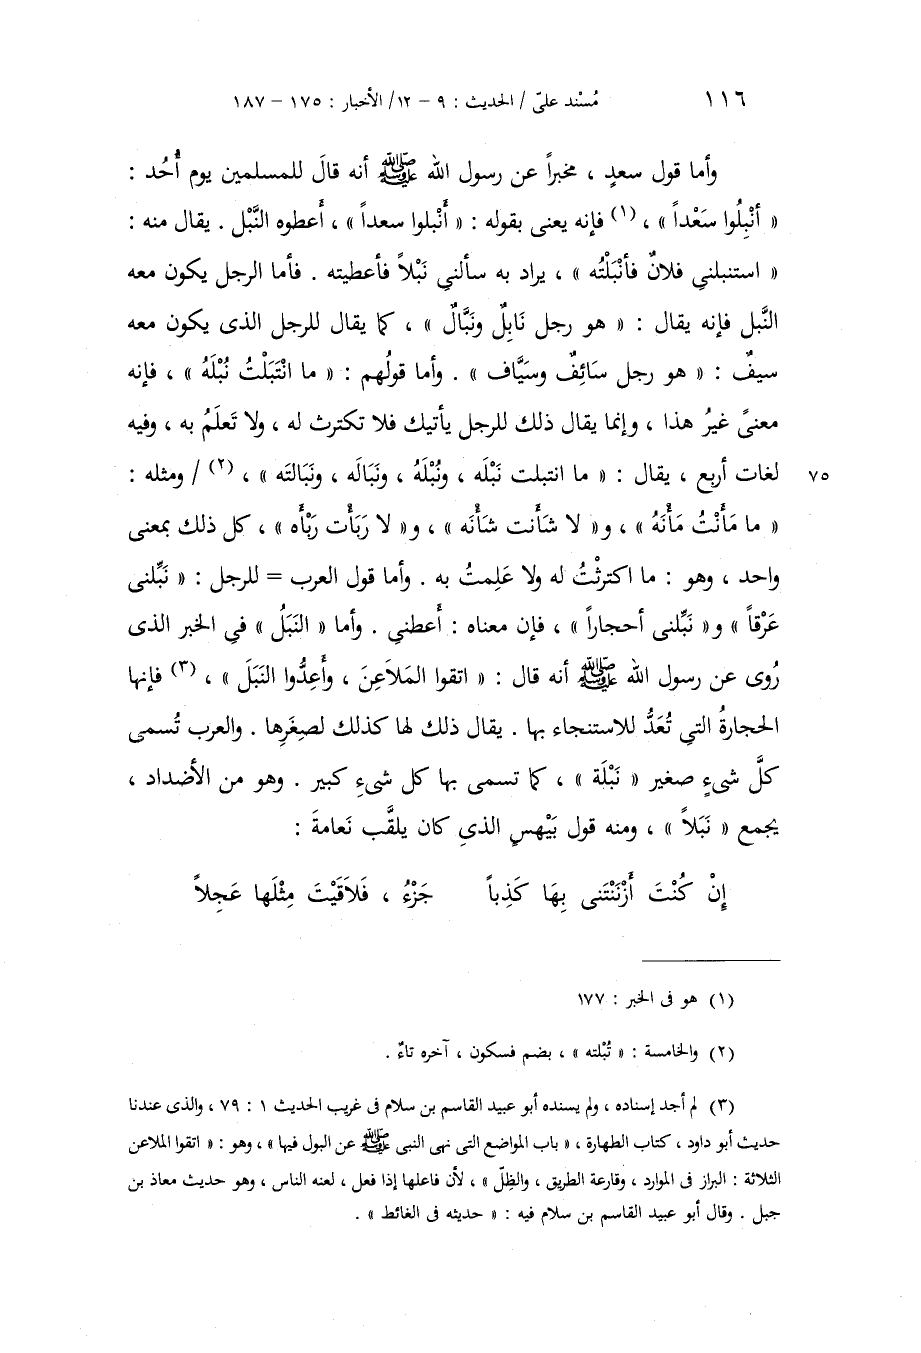 ١١٦ مُسْند علىّ / الحديث : ٩ – ١٢/ الأخبار : ١٧٥ – ١٨٧
وأما قول سعدٍ ، مخبراً عن رسول الله ﷺ أنه قالَ للمسلمين يوم أُحُد :
« أنْبِلُوا سَعْداً » ، (١) فإنه يعنى بقوله : « أَنْبلوا سعداً » ، أَعطوه النَّبْل . يقال منه :
« استنبلني فلانٌ فأنْبَلْتُه » ، يراد به سألني نَبْلاً فأعطيته . فأما الرجل يكون معه
النَّبل فإنه يقال : « هو رجل نَابِلٌ ونَبَّالٌ » ، كما يقال للرجل الذى يكون معه
سيفٌ : « هو رجل سَائِفٌ وسَيَّاف » . وأما قولُهم : « ما انْتَبَلْتُ نُبْلَهُ » ، فإنه
معنىً غيرُ هذا ، وإنما يقال ذلك للرجل يأتيك فلا تكترث له ، ولا تَعلَمُ به ، وفيه
لغات أربع ، يقال : « ما انتبلت نَبْلَه ، ونُبْلَهُ ، ونَبَالَه ، ونَبَالتَه » ، (٢) / ومثله : ٧٥
« ما مَأَنْتُ مَأْنَهُ » ، و« لا شَأَنت شَأْنَه » ، و« لا رَبَأْت رَبْأَه » ، كل ذلك بمعنى
واحد ، وهو : ما اكترثْتُ له ولا عَلِمتُ به . وأما قول العرب = للرجل : « نَبِّلنى
عَرْقاً » و« نَبِّلنى أحجاراً » ، فإن معناه : أَعطني . وأما « النَبَلُ » في الخبر الذى
رُوى عن رسول الله ﷺ أنه قال : « اتقوا المَلاَعِنَ ، وأَعِدُّوا النَبَلَ » ، (٣) فإنها
الحجارةُ التي تُعَدُّ للاستنجاء بها . يقال ذلك لها كذلك لصِغَرِها . والعرب تُسمى
كلَّ شىءٍ صغير « نَبْلَة » ، كما تسمى بها كل شىءِ كبير . وهو من الأضداد ،
يجمع « نَبَلاً » ، ومنه قول بَيْهسٍ الذيِ كان يلقَّب نَعامةَ :
إِنْ كُنْتَ أَزْنَنْتَنى بِهَا كَذِباً جَزْءُ ، فَلاَقَيْتَ مِثْلَها عَجِلاً
(١) هو فى الخبر : ١٧٧
(٢) والخامسة : « نُبْلته » ، بضم فسكون ، آخره تاءٌ .
(٣) لم أجد إسناده ، ولم يسنده أبو عبيد القاسم بن سلام فى غريب الحديث ١ : ٧٩ ، والذى عندنا
حديث أبو داود ، كتاب الطهارة ، « باب المواضع التى نهى النبى ﷺ عن البول فيها » ، وهو : « اتقوا الملاعن
الثلاثة : البراز فى الموارد ، وقارعة الطريق ، والظِلّ » ، لأن فاعلها إذا فعل ، لعنه الناس ، وهو حديث معاذ بن
جبل . وقال أبو عبيد القاسم بن سلام فيه : « حديثه فى الغائط » .